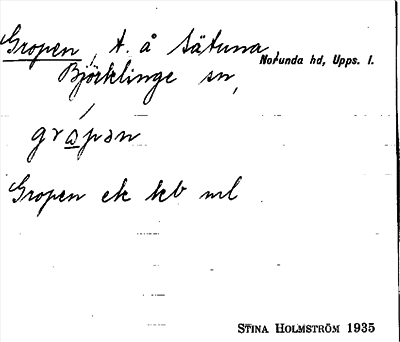 Gropen, t. å Sätuna, Norunda hd, Upps. l.
Björklinge sn,
grɷ́pən
Gropen ek kb ml
STINA HOLMSTRÖM 1935